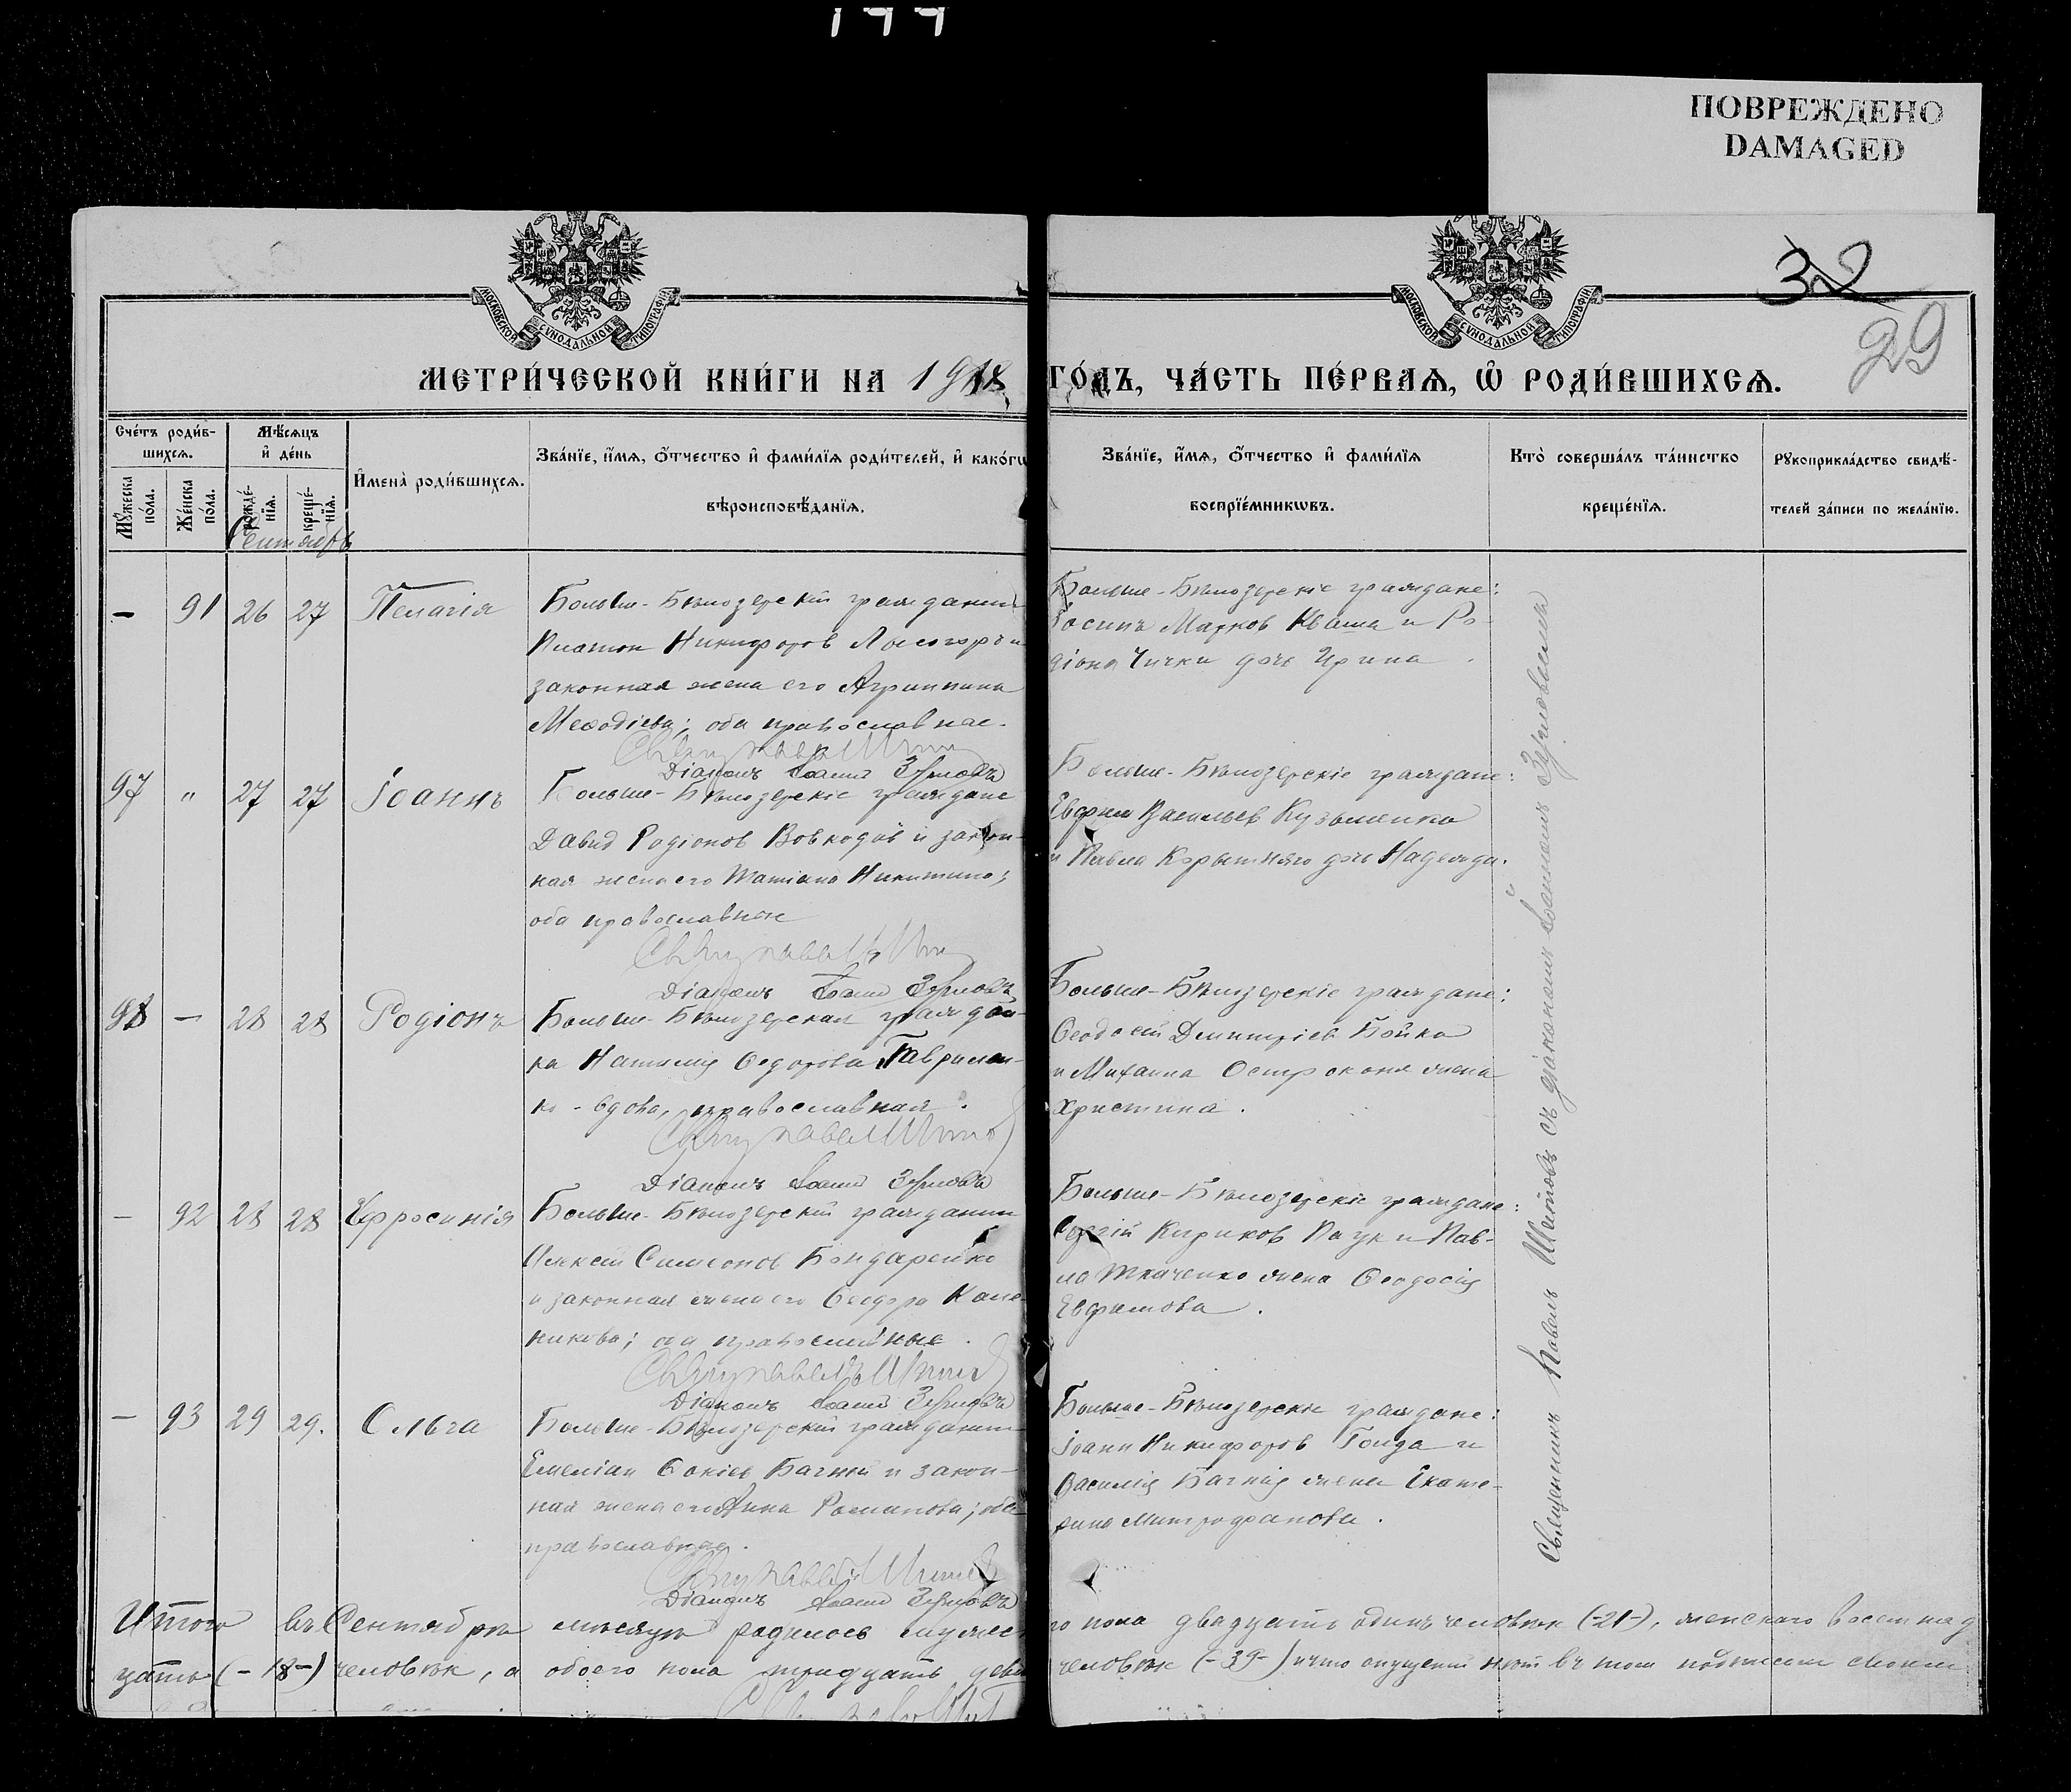 ПОВРЕЖДЕНО
DAMAGED
МОСКОВСКОЙ СѴНОДАЛЬНОЙ ТИПОГРАФІИ
МОСКОВСКОЙ СѴНОДАЛЬНОЙ ТИПОГРАФІИ
32
29
МЕТРИ́ЧЕСКОЙ КНИ́ГИ НА 1918 ГО́ДЪ, ЧА́СТЬ ПЕ́РВАѦ, Ѡ҆ РОДИ́ВШИХСѦ.
Сче́тъ роди́в-
шихсѧ.
Мꙋ́жеска по́ла.
Же́нска по́ла.
Мѣ́сѧцъ
и҆ де́нь
рожде́-
нїѧ.
креще́-
нїѧ.
Сентябрь
И҆мена̀ роди́вшихсѧ.
Зва́нїе, и҆́мѧ, ѻ҆́тчество и҆ фами́лїѧ роди́телей, и҆ како́гѡ
вѣроисповѣ́данїѧ.
Зва́нїе, и҆́мѧ, ѻ҆́тчество и҆ фами́лїѧ
воспрїе́мникѡвъ.
Кто̀ соверша́лъ та́инство
креще́нїѧ.
Рꙋкоприкла́дство свидѣ́-
телей за́писи по жела́нїю.
— 91 26 27 Пелагія
Больше-Бѣлозерскій гражданин
Платон Никифоров Лысогоръ и
законная жена его Агриппина
Меѳодіева; оба православные.
Діаконъ Іоанн Зерновъ
Больше-Бѣлозерскіе граждане:
Марков Кваша и Ро-
діона Чички дочь Ирина.
97 " 27 27 Іоаннъ
Больше-Бѣлозерскіе граждане
Давид Родіонов Вовкодав и закон-
ная жена его Татіана Никитина;
оба православные
Діаконъ Іоанн Зерновъ
Больше-Бѣлозерскіе граждане:
Евфим Васильев Кузьменко
и Павла Корытняго дочь Надежда.
98 — 28 28 Родіонъ
Больше-Бѣлозерская граждан-
ка Наталія Ѳедорова Гаврилен-
ко - вдова, православная.
Діаконъ Іоанн Зерновъ
Больше-Бѣлозерскіе граждане:
Ѳеодосій Димитріев Бойко
и Михаила жена
Христина.
— 92 28 28 Ефросинія
Больше-Бѣлозерскій гражданин
Алексій Симеонов Бондаренко
и законная жена его Ѳеодора
никова; оба православные.
Діаконъ Іоанн Зерновъ
Больше-Бѣлозерскіе граждане:
Сергій Кириков Паук и Пав-
ла Ткаченко жена Ѳеодосія
Евфимова.
— 93 29 29. Ольга
Больше-Бѣлозерскій гражданин
Емеліан Ѳокіев Багній и закон-
ная жена его Анна Романова; оба
православные.
Діаконъ Іоанн Зерновъ
Больше-Бѣлозерскіе граждане:
Іоанн Никифоров Гонда и
Василія Багнія жена Екате-
рина Митрофанова.
Священникъ Павелъ Шитовъ съ діакономъ Іоанномъ Зерновымъ
Итого въ Сентябрѣ мѣсяцѣ родилось мужес го пола двадцать одинъ человѣк (-21-), женскаго восемнад
цать (-18-) человѣк, а обоего пола тридцать девя человѣк (-39-) и что опущеній нѣт въ том подписом своим